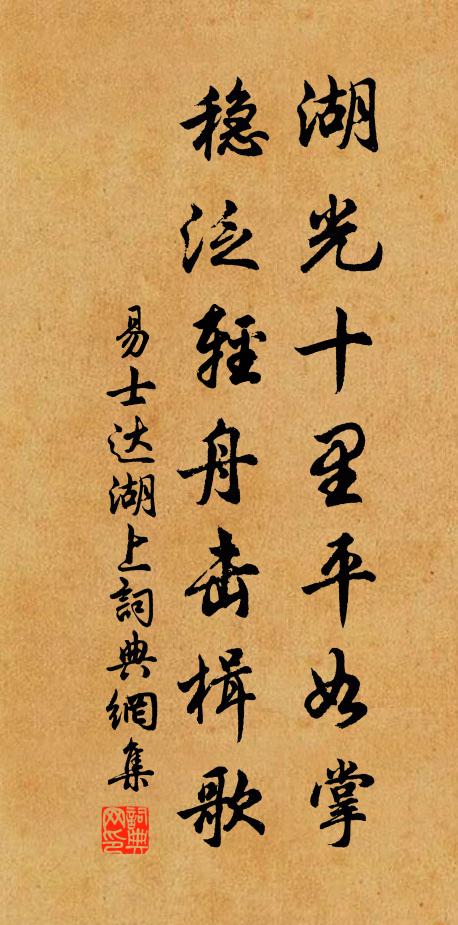 湖光十里平如掌
稳泛轻舟击楫歌
易士达湖上詞典網集
詞典网印